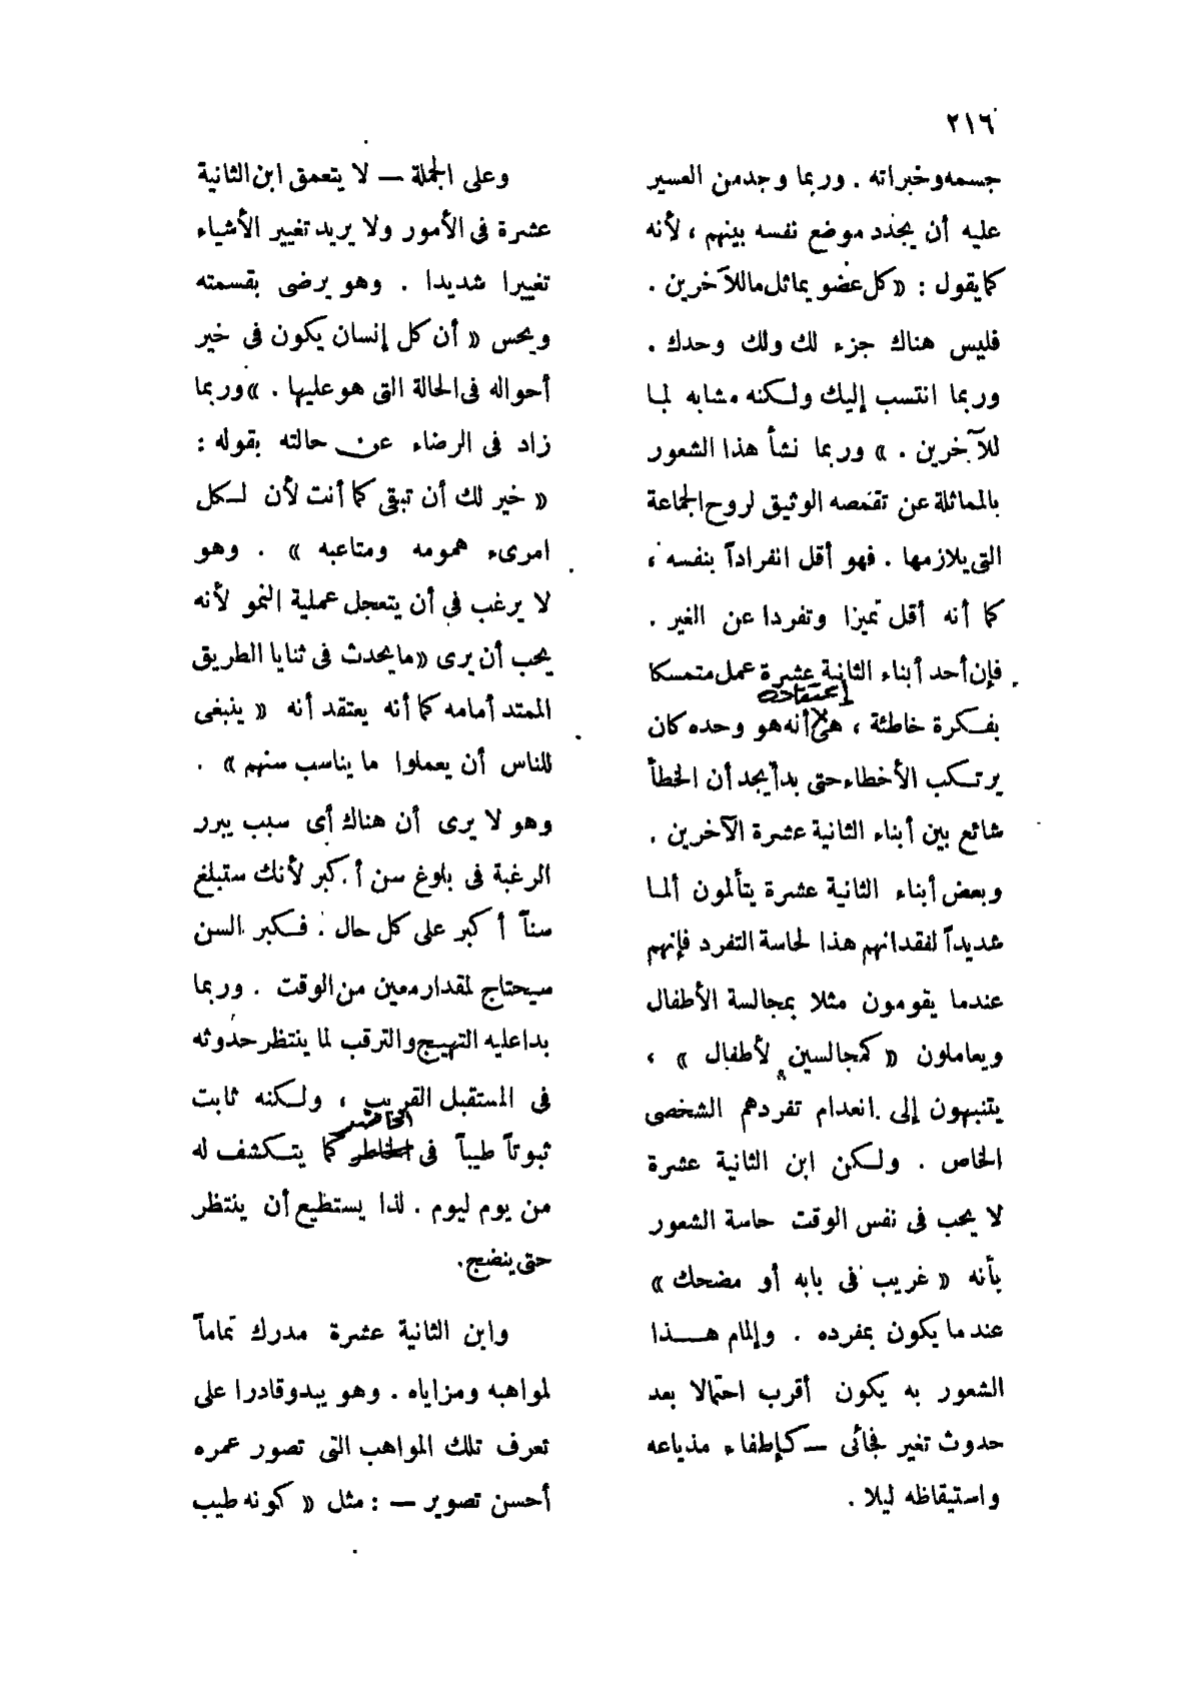 ٢١٦
جسمه وخبراته . وربما وجد من العسير
عليه أن يحدد موضع نفسه بينهم ، لأنه
كما يقول : « كل عضو يماثل ما للآخرين .
فليس هناك جزء لك ولك وحدك .
وربما انتسب إليك ولكنه مشابه لما
للآخرين . » وربما نشأ هذا الشعور
بالمماثلة عن تقمصه الوثيق لروح الجماعة
التى يلازمها . فهو أقل انفراداً بنفسه ،
كما أنه أقل تميزا وتفردا عن الغير .
فإن أحد أبناء الثانية عشرة عمل متمسكا
اعتقاده
بفكرة خاطئة ، هى أنه هو وحده كان
يرتكب الأخطاء حتى بدأ يجد أن الخطأ
شائع بين أبناء الثانية عشرة الآخرين .
وبعض أبناء الثانية عشرة يتألمون ألما
شديداً لفقدانهم هذا لحاسة التفرد فإنهم
عندما يقومون مثلا بمجالسة الأطفال
ويعاملون « كمجالسين لأطفال » ،
يتنبهون إلى انعدام تفردهم الشخصى
الخاص . ولكن ابن الثانية عشرة
لا يحب فى نفس الوقت حاسة الشعور
بأنه « غريب فى بابه أو مضحك »
عند ما يكون بمفرده . وإلمام هذا
الشعور به يكون أقرب احتمالا بعد
حدوث تغير فجائى — كإطفاء مذياعه
واستيقاظه ليلا .
وعلى الجملة — لا يتعمق ابن الثانية
عشرة فى الأمور ولا يريد تغيير الأشياء
تغييرا شديدا . وهو يرضى بقسمته
ويحس « أن كل إنسان يكون فى خير
أحواله فى الحالة التى هو عليها . » وربما
زاد فى الرضاء عن حالته بقوله :
« خير لك أن تبقى كما أنت لأن لكل
امرىء همومه ومتاعبه » . وهو
لا يرغب فى أن يتعجل عملية النمو لأنه
يحب أن يرى « ما يحدث فى ثنايا الطريق
الممتد أمامه كما أنه يعتقد أنه « ينبغى
للناس أن يعملوا ما يناسب سنهم » .
وهو لا يرى أن هناك أى سبب يبرر
الرغبة فى بلوغ سن أكبر لأنك ستبلغ
سناً أكبر على كل حال . فكبر السن
سيحتاج لمقدار معين من الوقت . وربما
بدا عليه التهيج والترقب لما ينتظر حدوثه
فى المستقبل القريب ، ولكنه ثابت
الحاضر
ثبوتاً طيباً فى الخاطر كما يتكشف له
من يوم ليوم . لذا يستطيع أن ينتظر
حتى ينضج .
وابن الثانية عشرة مدرك تماماً
لمواهبه ومزاياه . وهو يبدو قادرا على
تعرف تلك المواهب التى تصور عمره
أحسن تصوير — : مثل « كونه طيب